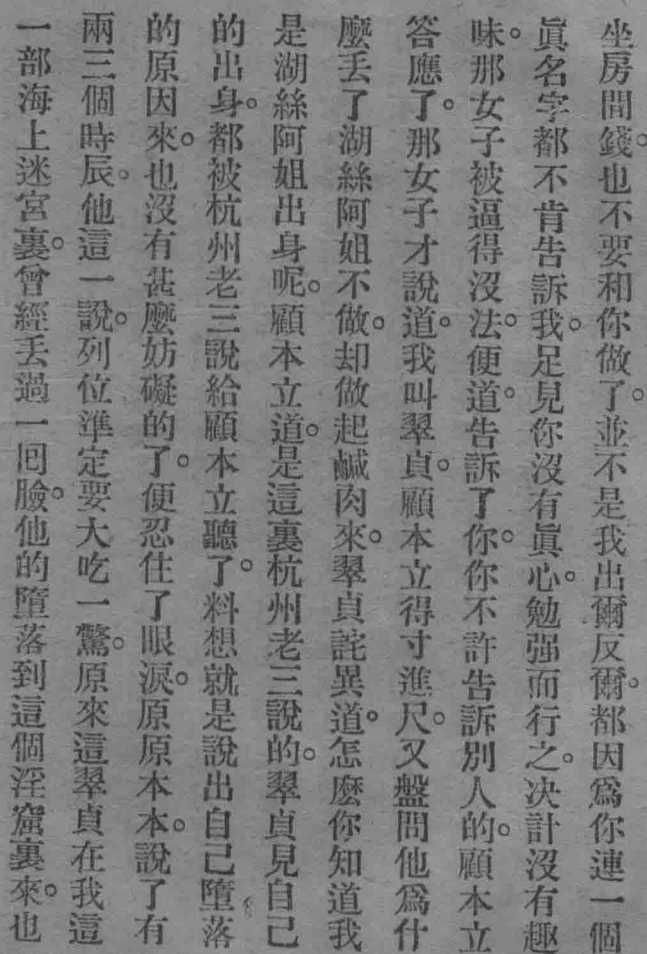 坐房間錢。也不要和你做了。並不是我出爾反爾。都因爲你連一個
眞名字都不肯告訴我。足見你沒有眞心。勉强而行之。决計沒有趣
味。那女子被逼得沒法。便道。告訴了你。你不許告訴別人的。顧本立
答應了。那女子才說道。我叫翠貞。顧本立得寸進尺。又盤問他爲什
麼丟了湖絲阿姐不做。却做起鹹肉來。翠貞詫異道。怎麼你知道我
是湖絲阿姐出身呢。顧本立道。是這裏杭州老三說的。翠貞見自己
的出身。都被杭州老三說給顧本立聽了。料想就是說出自己墮落
的原因來。也沒有甚麼妨礙的了。便忍住了眼淚。原原本本。說了有
兩三個時辰。他這一說。列位準定要大吃一驚。原來這翠貞在我這
一部海上迷宮裏。曾經丟過一囘臉。他的墮落到這個淫窟裏來。也